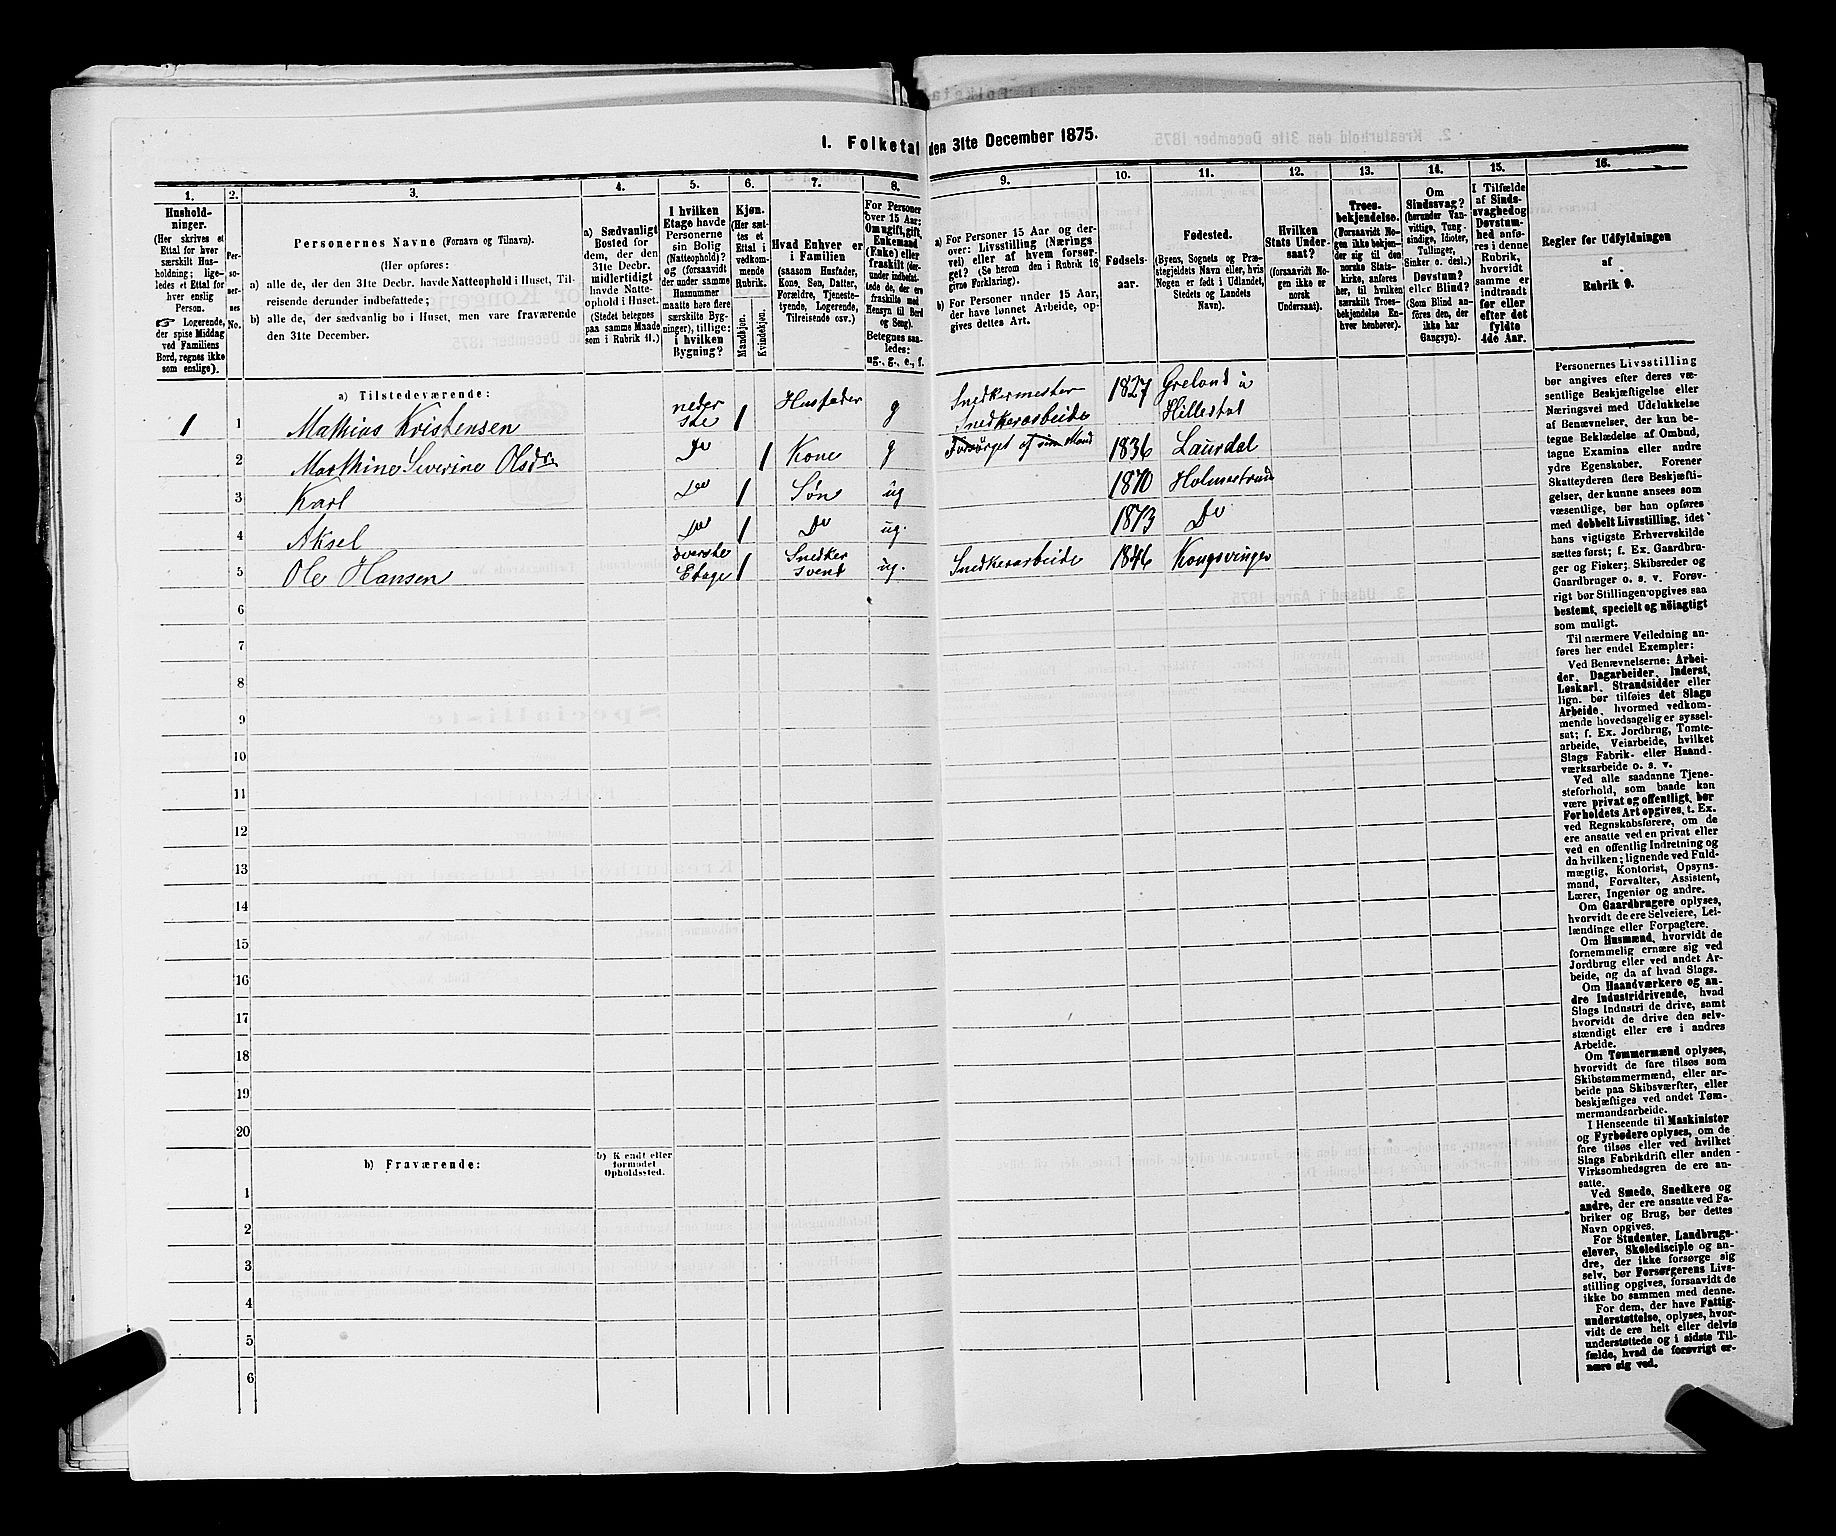 I. Folketal den 31te December 1875.
1.
2.
3.
4.
5.
6.
7.
8.
9.
10.
11.
12.
13.
14.
15.
16.
Hushold-
ninger.
(Her skrives et
Ettal for hver
særskilt Hus-
holdning; lige-
ledes et Ettal for
hver enslig
Person.
☞ Logerende,
der spise Middag
ved Familiens
Bord, regnes ikke
som enslige).
Per-
so-
ner-
nes
No.
Personernes Navne (Fornavn og Tilnavn).
(Her opføres:
a) alle de, der den 31te Decbr. havde Natteophold i Huset, Til-
reisende derunder indbefattede;
b) alle de, der sædvanlig bo i Huset, men vare fraværende
den 31te December.
a) Sædvanligt
Bosted for
dem, der den
31te Decbr.
midlertidigt
havde Natte-
ophold i Huset.
(Stedet betegnes
paa samme Maade
som i Rubrik 11.)
I hvilken
Etage havde
Personerne
sin Bolig
(Natteophold)?
og (forsaavidt
der under samme
Husnummer
maatte høre flere
særskilte Byg-
ninger), tillige:
i hvilken
Bygning?
Kjøn.
(Her sæt-
tes et
Ettal i
vedkom-
mende
Rubrik.
Mandkjøn.
Kvindekjøn.
Hvad Enhver er
i Familien
(saasom Husfader,
Kone, Søn, Datter,
Forældre, Tjeneste-
tyende, Logerende,
Tilreisende osv.)
For Personer
over 15 Aar:
Om ugift, gift,
Enkemand
(Enke) eller
fraskilt (der-
under indbefat-
tede de, der ere
fraskilte med
Hensyn til Bord
og Seng).
Betegnes saa-
ledes:
ug., g., e., f.
a) For Personer 15 Aar og der-
over: Livsstilling (Nærings
vei) eller af hvem forsør-
get? (Se herom den i Rubrik 16
givne Forklaring).
b) For Personer under 15 Aar,
der have lønnet Arbeide, op-
gives dettes Art.
Fødsels-
aar.
Fødested.
(Byens, Sognets og Præ-
stegjeldets Navn eller, hvis
Nogen er født i Udlandet,
Stedets og Landets
Navn).
Hvilken
Stats Under-
saat?
(forsaavidt No-
gen ikke er
norsk
Undersaat).
Troes-
bekjendelse.
(Forsaavidt No-
gen ikke bekjen-
der sig til den
norske Stats-
kirke, anføres
her, til hvilken
særskilt Troes-
bekjendelse En-
hver henhører).
Om
Sindssvag?
(herunder Van-
vittige, Tung-
sindige, Idioter,
Tullinger,
Sinker o. desl.)
Døvstum?
eller Blind?
(Som Blind an-
føres den, der
ikke har
Gangsyn).
I Tilfælde
af Sinds-
svaghed og
Døvstum-
hed anfø-
res i denne
Rubrik,
hvorvidt
samme er
indtraadt
før eller
efter det
fyldte
4de Aar.
Regler for Udfyldningen
af
Rubrik 9.
a) Tilstedeværende:
1 1 Mathias Kristensen neder ste 1 Husfader g Snedkermester Snedkerarbeide 1827 Hillestal
2 Marthine Severine Olsdr Do 1 Kone g Forsørget af sin Mand 1836 Laurdal
3 Karl Do 1 Søn ug 1870 Holmestrand
4 Aksel Do 1 Do ug. 1873 Do
5 Ole Hansen øverste Etage 1 Snedker svend ug. Snedkerarbeide 1846 Kongsvinger
6
7
8
9
10
11
12
13
14
15
16
17
18
19
20
b) Fraværende:
b) Kendt eller
formodet
Opholdssted.
1
2
3
4
5
6
Personernes Livsstilling
bør angives efter deres væ-
sentlige Beskjæftigelse eller
Næringsvei med Udelukkelse
af Benævnelser, der kun be-
tegne Beklædelse af Ombud,
tagne Examina eller andre
ydre Egenskaber. Forener
Skatteyderen flere Beskjæfti-
gelser, der kunne ansees som
væsentlige, bør han opføres
med dobbelt Livsstilling, idet
hans vigtigste Erhvervskilde
sættes først; f. Ex. Gaardbru-
ger og Fisker; Skibsreder og
Gaardbruger o. s. v. Forøv-
rigt bør Stillingen opgives saa
bestemt, specielt og nøiagtigt
som muligt.
Til nærmere Veiledning an-
føres her endel Exempler:
Ved Benævnelserne: Arbei-
der, Dagarbeider, Inderst,
Løskarl, Strandsidder eller
lign. bør tilføies det Slags
Arbeide, hvormed vedkom-
mende hovedsagelig er syssel-
sat; f. Ex. Jordbrug, Tomte-
arbeide, Veiarbeide, hvilket
Slags Fabrik- eller Haand-
værksarbeide o. s. v.
Ved alle saadanne Tjene-
steforhold, som baade kan
være privat og offentligt, bør
Forholdets Art opgives, t. Ex.
ved Regnskabsførere, om de
ere ansatte ved en privat eller
ved en offentlig Indretning og
da hvilken; lignende ved Fuld-
mægtig, Kontorist, Opsyns-
mand, Forvalter, Assistent,
Lærer, Ingeniør og andre.
Om Gaardbrugere oplyses,
hvorvidt de ere Selveiere, Lei-
lændinge eller Forpagtere.
Om Husmænd, hvorvidt de
fornemmelig ernære sig ved
Jordbrug eller ved andet Ar-
beide, og da af hvad Slags.
Om Haandværkere og an-
dre Industridrivende, hvad
Slags Industri de drive, samt
hvorvidt de drive den selv-
stændigt eller ere i andres
Arbeide.
Om Tømmermænd oplyses,
hvorvidt de fare tilsøs som
Skibstømmermænd, eller ar-
beide paa Skibsværfter, eller
beskjæftiges ved andet Tøm-
mermandsarbeide.
I Henseende til Maskinister
og Fyrbødere oplyses, om de
fare tilsøs eller ved hvilket
Slags Fabrikdrift eller anden
Virksomhedsgren de ere an-
satte.
Ved Smede, Snedkere og
andre, der ere ansatte ved Fa-
briker og Brug, bør dettes
Navn opgives.
For Studenter, Landbrugs-
elever, Skoledisciple og an-
dre, der ikke forsørge sig
selv, bør Forsørgerens Livs-
stilling opgives, forsaavidt de
ikke bo sammen med denne.
For dem, der have Fattig-
understøttelse, oplyses, hvor-
vidt de ere helt eller delvis
understøttede og i sidste Til-
fælde, hvad de forøvrigt er-
nære sig ved.